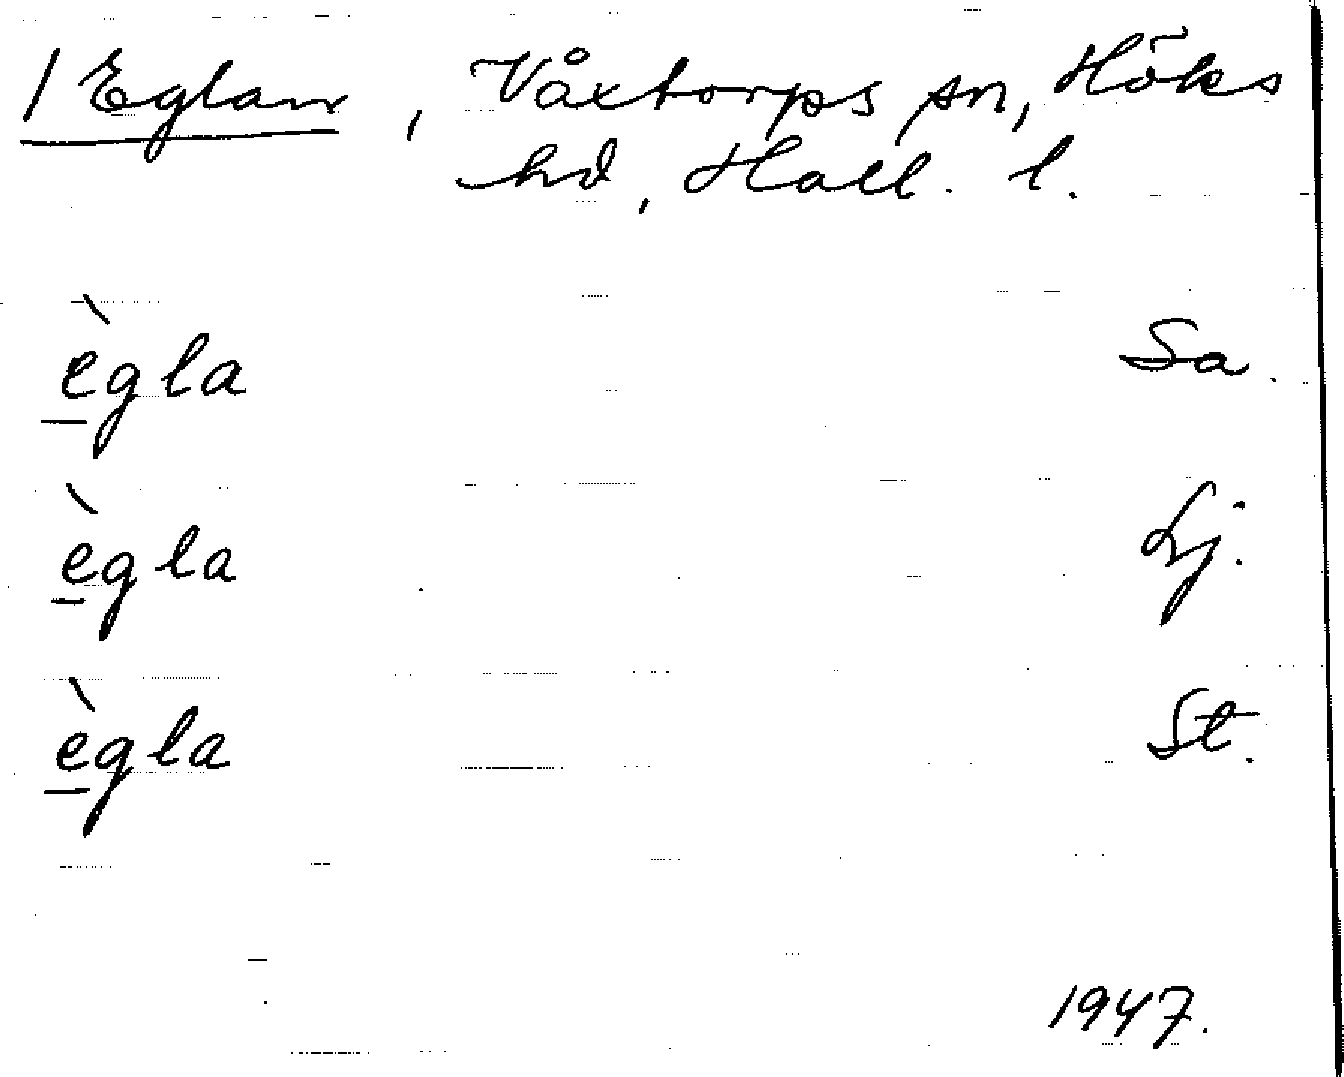 / Eglan, Våxtorps sn, Höks
hd, Hall. l.
ègla Sa.
ègla Lj.
ègla St.
1947.